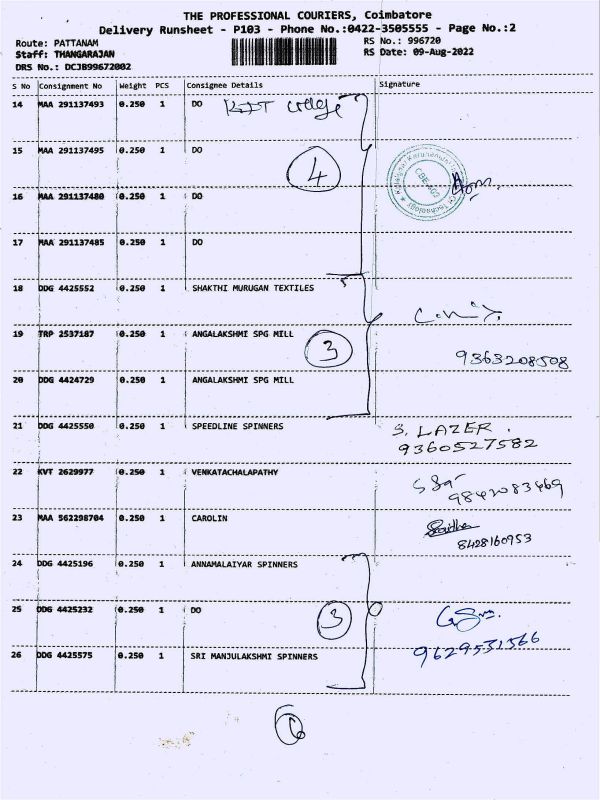 THE PROFESSIONAL COURIERS, Coimbatore
Delivery Runsheet - P103 - Phone No.:0422-3505555 - Page No.:2
Route: PATTANAM RS No.: 996720
Staff: THANGARAJAN RS Date: 09-Aug-2022
DRS No.: DCJB99672002
S No Consignment No Weight PCS Consignee Details Signature
14 MAA 291137493 0.250 1 DO KIT College
15 MAA 291137495 0.250 1 DO
4
16 MAA 291137480 0.250 1 DO
17 MAA 291137485 0.250 1 DO
18 DDG 4425552 0.250 1 SHAKTHI MURUGAN TEXTILES
19 TRP 2537187 0.250 1 ANGALAKSHMI SPG MILL
3 9363208508
20 DDG 4424729 0.250 1 ANGALAKSHMI SPG MILL
21 DDG 4425550 0.250 1 SPEEDLINE SPINNERS S. LAZER.
9360527582
22 KVT 2629977 0.250 1 VENKATACHALAPATHY
9842083469
23 MAA 562298704 0.250 1 CAROLIN
8428160953
24 DDG 4425196 0.250 1 ANNAMALAIYAR SPINNERS
25 DDG 4425232 0.250 1 DO 3
9629531566
26 DDG 4425575 0.250 1 SRI MANJULAKSHMI SPINNERS